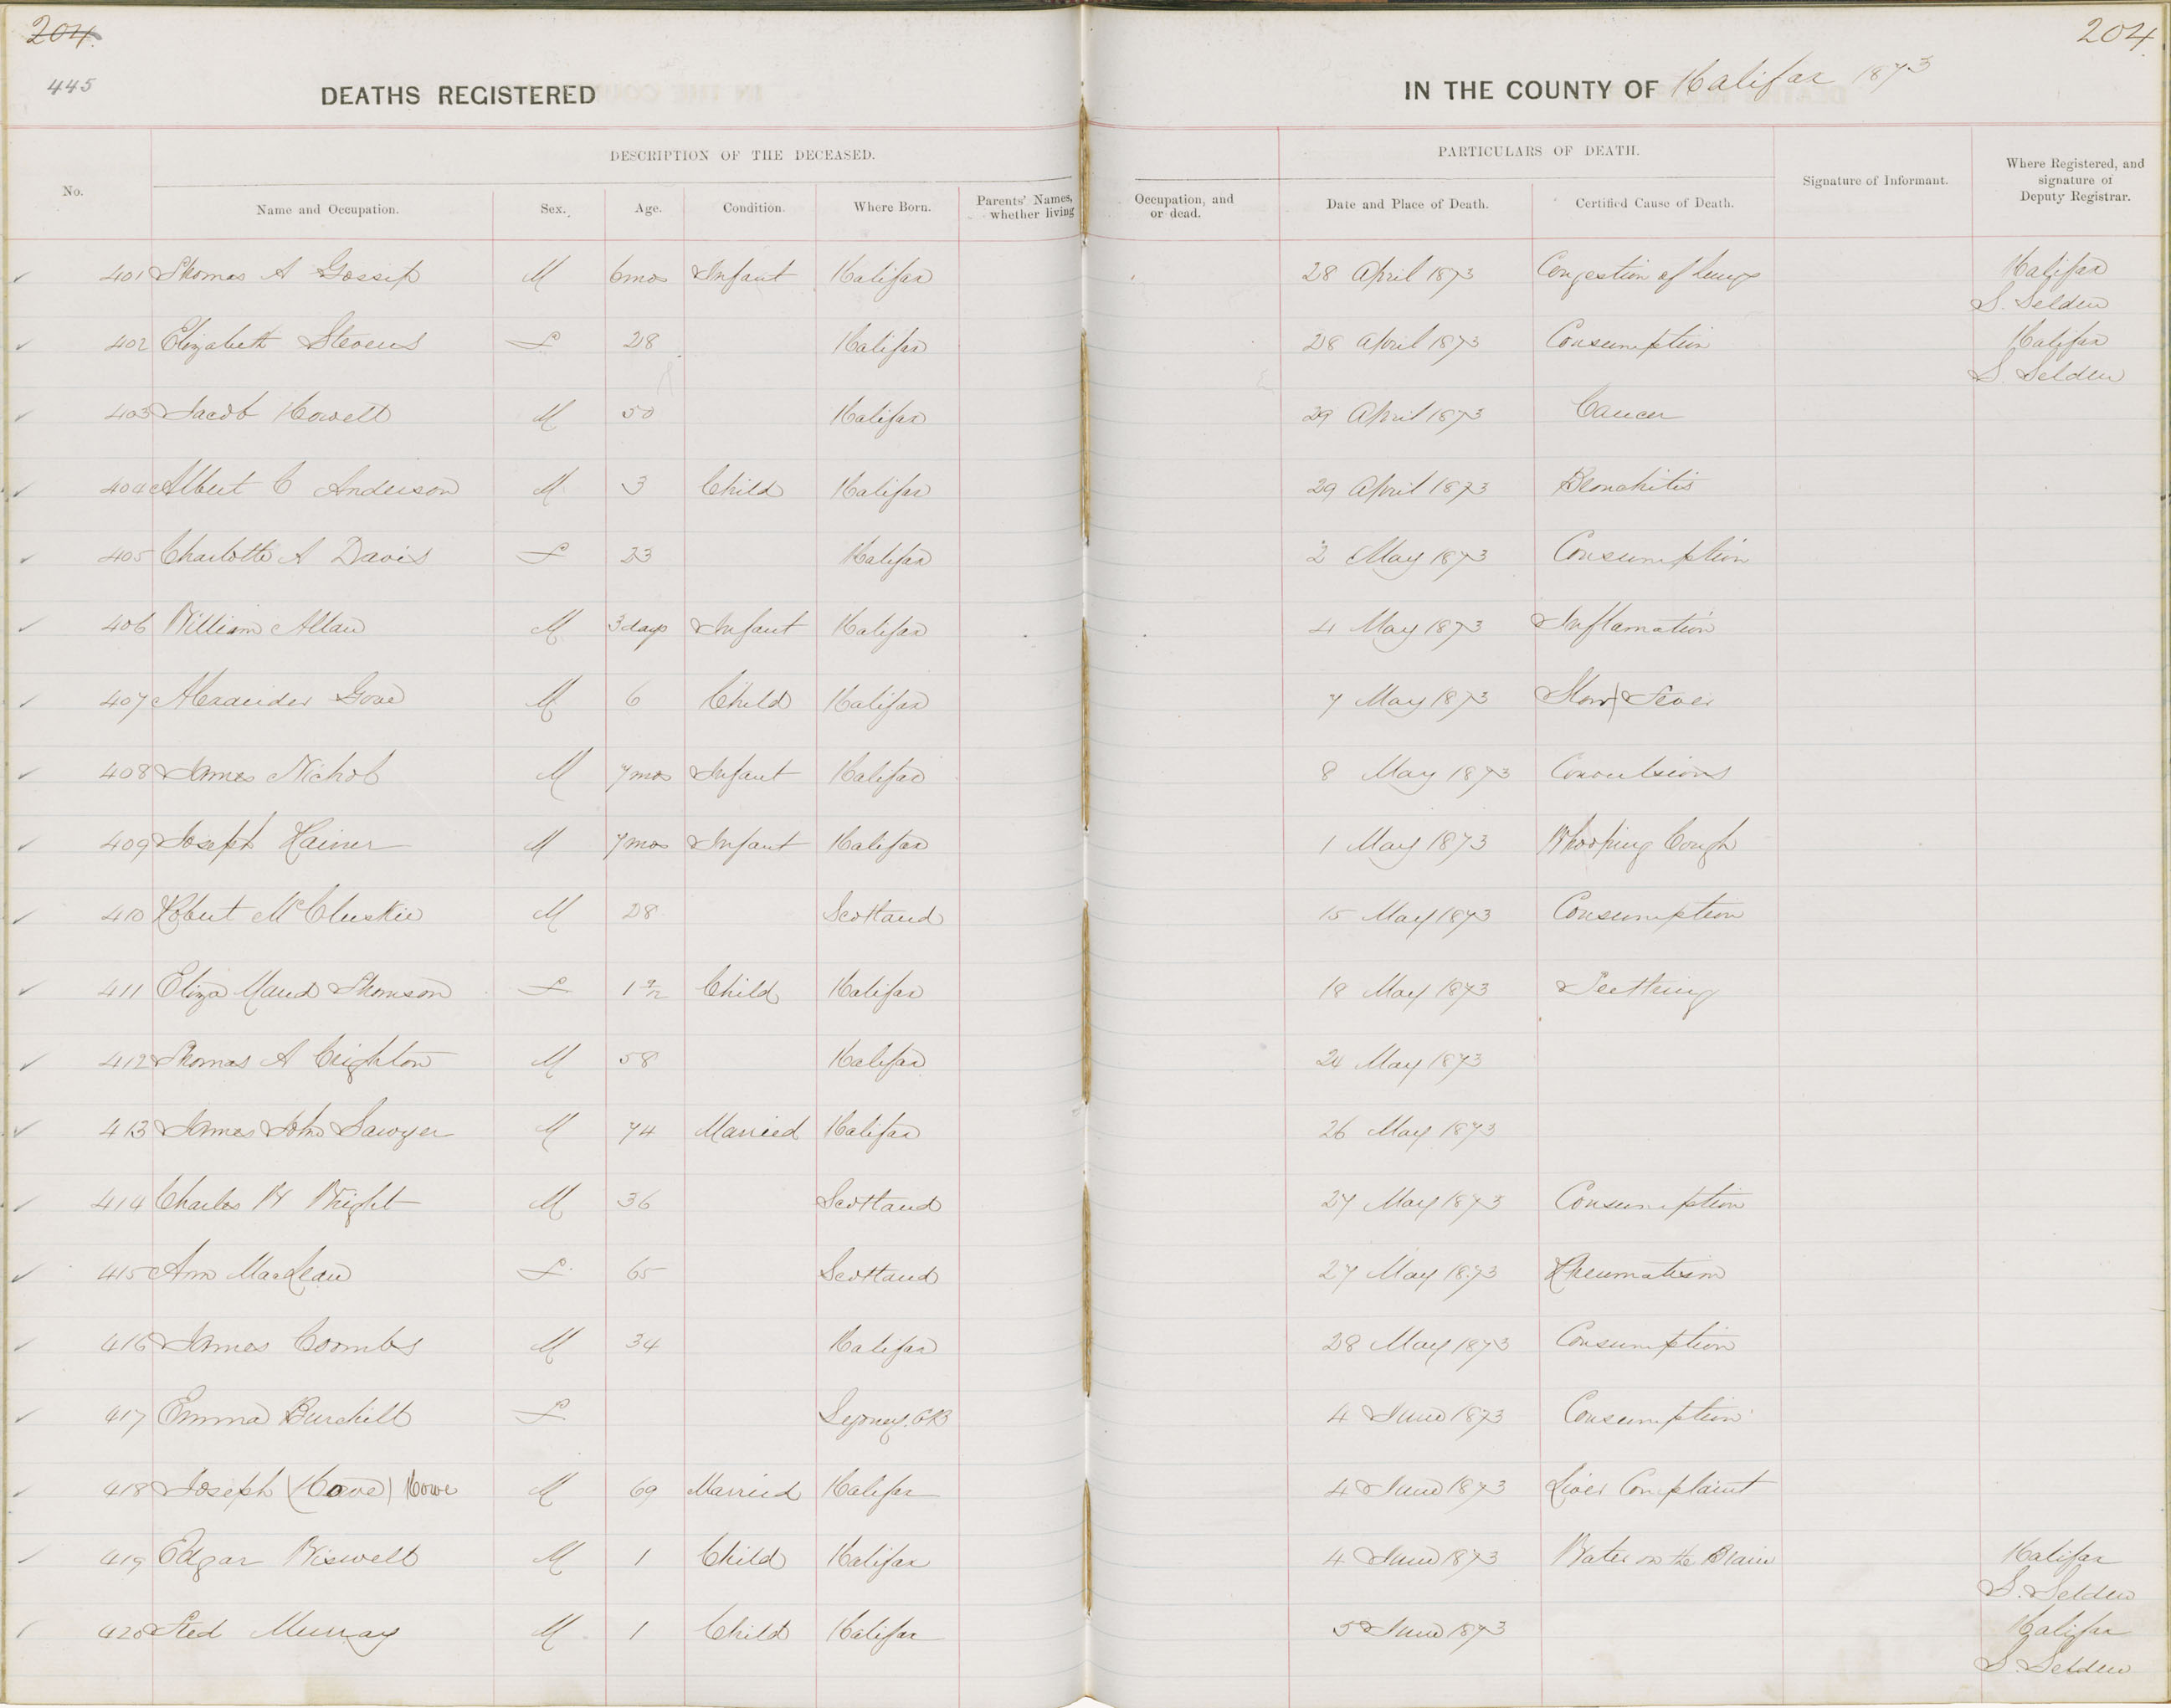 204.
204.
445
DEATHS REGISTERED IN THE COUNTY OF Halifax 1873
DESCRIPTION OF THE DECEASED. PARTICULARS OF DEATH.
No. Name and Occupation. Sex. Age. Condition. Where Born. Parents' Names, whether living Occupation, and or dead. Date and Place of Death. Certified Cause of Death. Signature of Informant. Where Registered, and signature of Deputy Registrar.
401 Thomas A Gossip M 6mos Infant Halifax 28 April 1873 Congestion of Lungs Halifax
S. Selden
402 Elizabeth Stevens F 28 Halifax 28 April 1873 Consumption Halifax
S. Selden
403 Jacob Howell M 50 Halifax 29 April 1873 Cancer
404 Albert C Anderson M 3 Child Halifax 29 April 1873 Bronchitis
405 Charlotte A Davis F 23 Halifax 2 May 1873 Consumption
406 William Allan M 3 days Infant Halifax 4 May 1873 Inflamation
407 Alexander Gove M 6 Child Halifax 7 May 1873 Slow Fever
408 James Nichol M 7mos Infant Halifax 8 May 1873 Convulsions
409 Joseph Hainer M 7mos Infant Halifax 1 May 1873 Whooping Cough
410 Robert McCluskie M 28 Scotland 15 May 1873 Consumption
411 Eliza Maud Thomson F 1 Child Halifax 18 May 1873 Teething
412 Thomas A Crighton M 58 Halifax 24 May 1873
413 James John Sawyer M 74 Married Halifax 26 May 1873
414 Charles W Wright M 36 Scotland 27 May 1873 Consumption
415 Ann MacLean F 65 Scotland 27 May 1873 Rheumatism
416 James Coombs M 34 Halifax 28 May 1873 Consumption
417 Emma Burchill F Sydney, CB 4 June 1873 Consumption
418 Joseph (Hove) Howe M 69 Married Halifax 4 June 1873 Liver Complaint
419 Edgar Wiswell M 1 Child Halifax 4 June 1873 Water on the Brain Halifax
S. Selden
420 Fred Murray M 1 Child Halifax 5 June 1873 Halifax
S. Selden